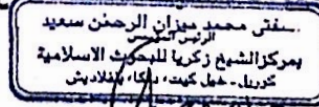 مفتي محمد ميزان الرحمن سعيد
الرئيس المؤسس
بمركز الشيخ زكريا للبحوث الاسلامية
كوريل - خيل كيت، داكا، بنغلاديش